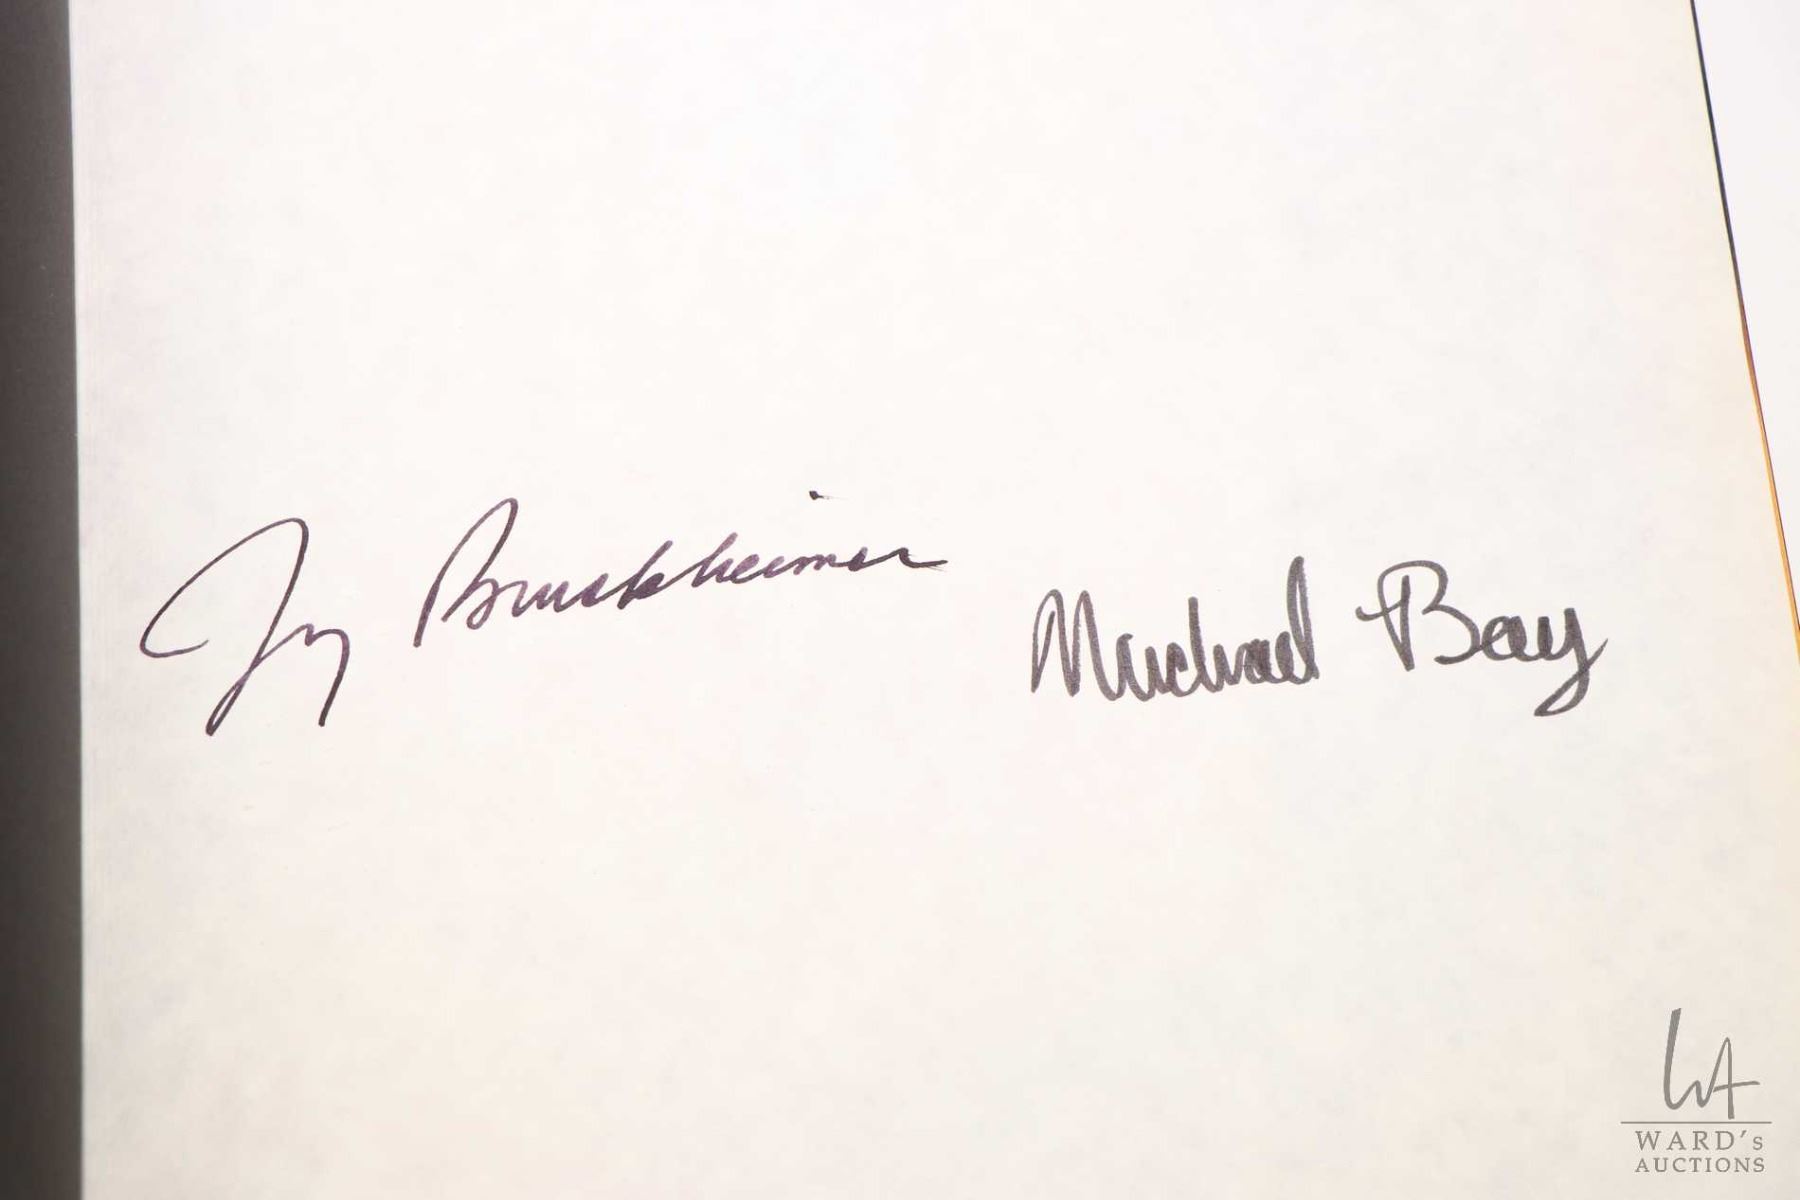 Jerry Bruckheimer
Michael Bay
WA
WARD's
AUCTIONS